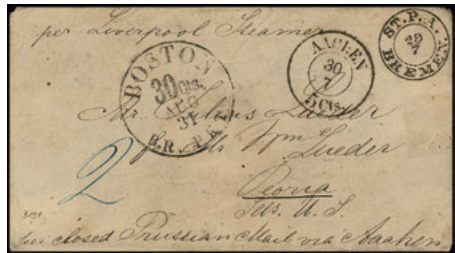 per Liverpool Steamer
ST.P.A.
29
7
BREMEN
AACHEN
30
7
5 Cts.
BOSTON
30 Cts.
AUG
31
BR. PKT.
Mr. Julius Lueder
Wm Lueder
2
Peoria
Ills. U. S.
per closed Prussian Mail via Aachen